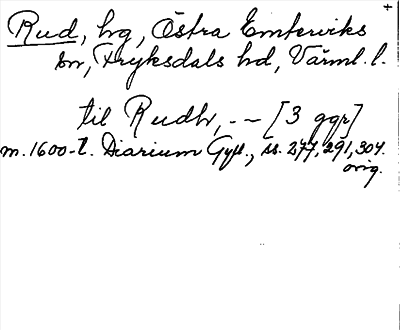 Rud, hg, Östra Emterviks
sn, Fryksdals hd, Värml. l.
till Rudh, -- [3 ggr]
m. 1600-t. Diarium Gyll., ss. 277, 291, 304.
orig.